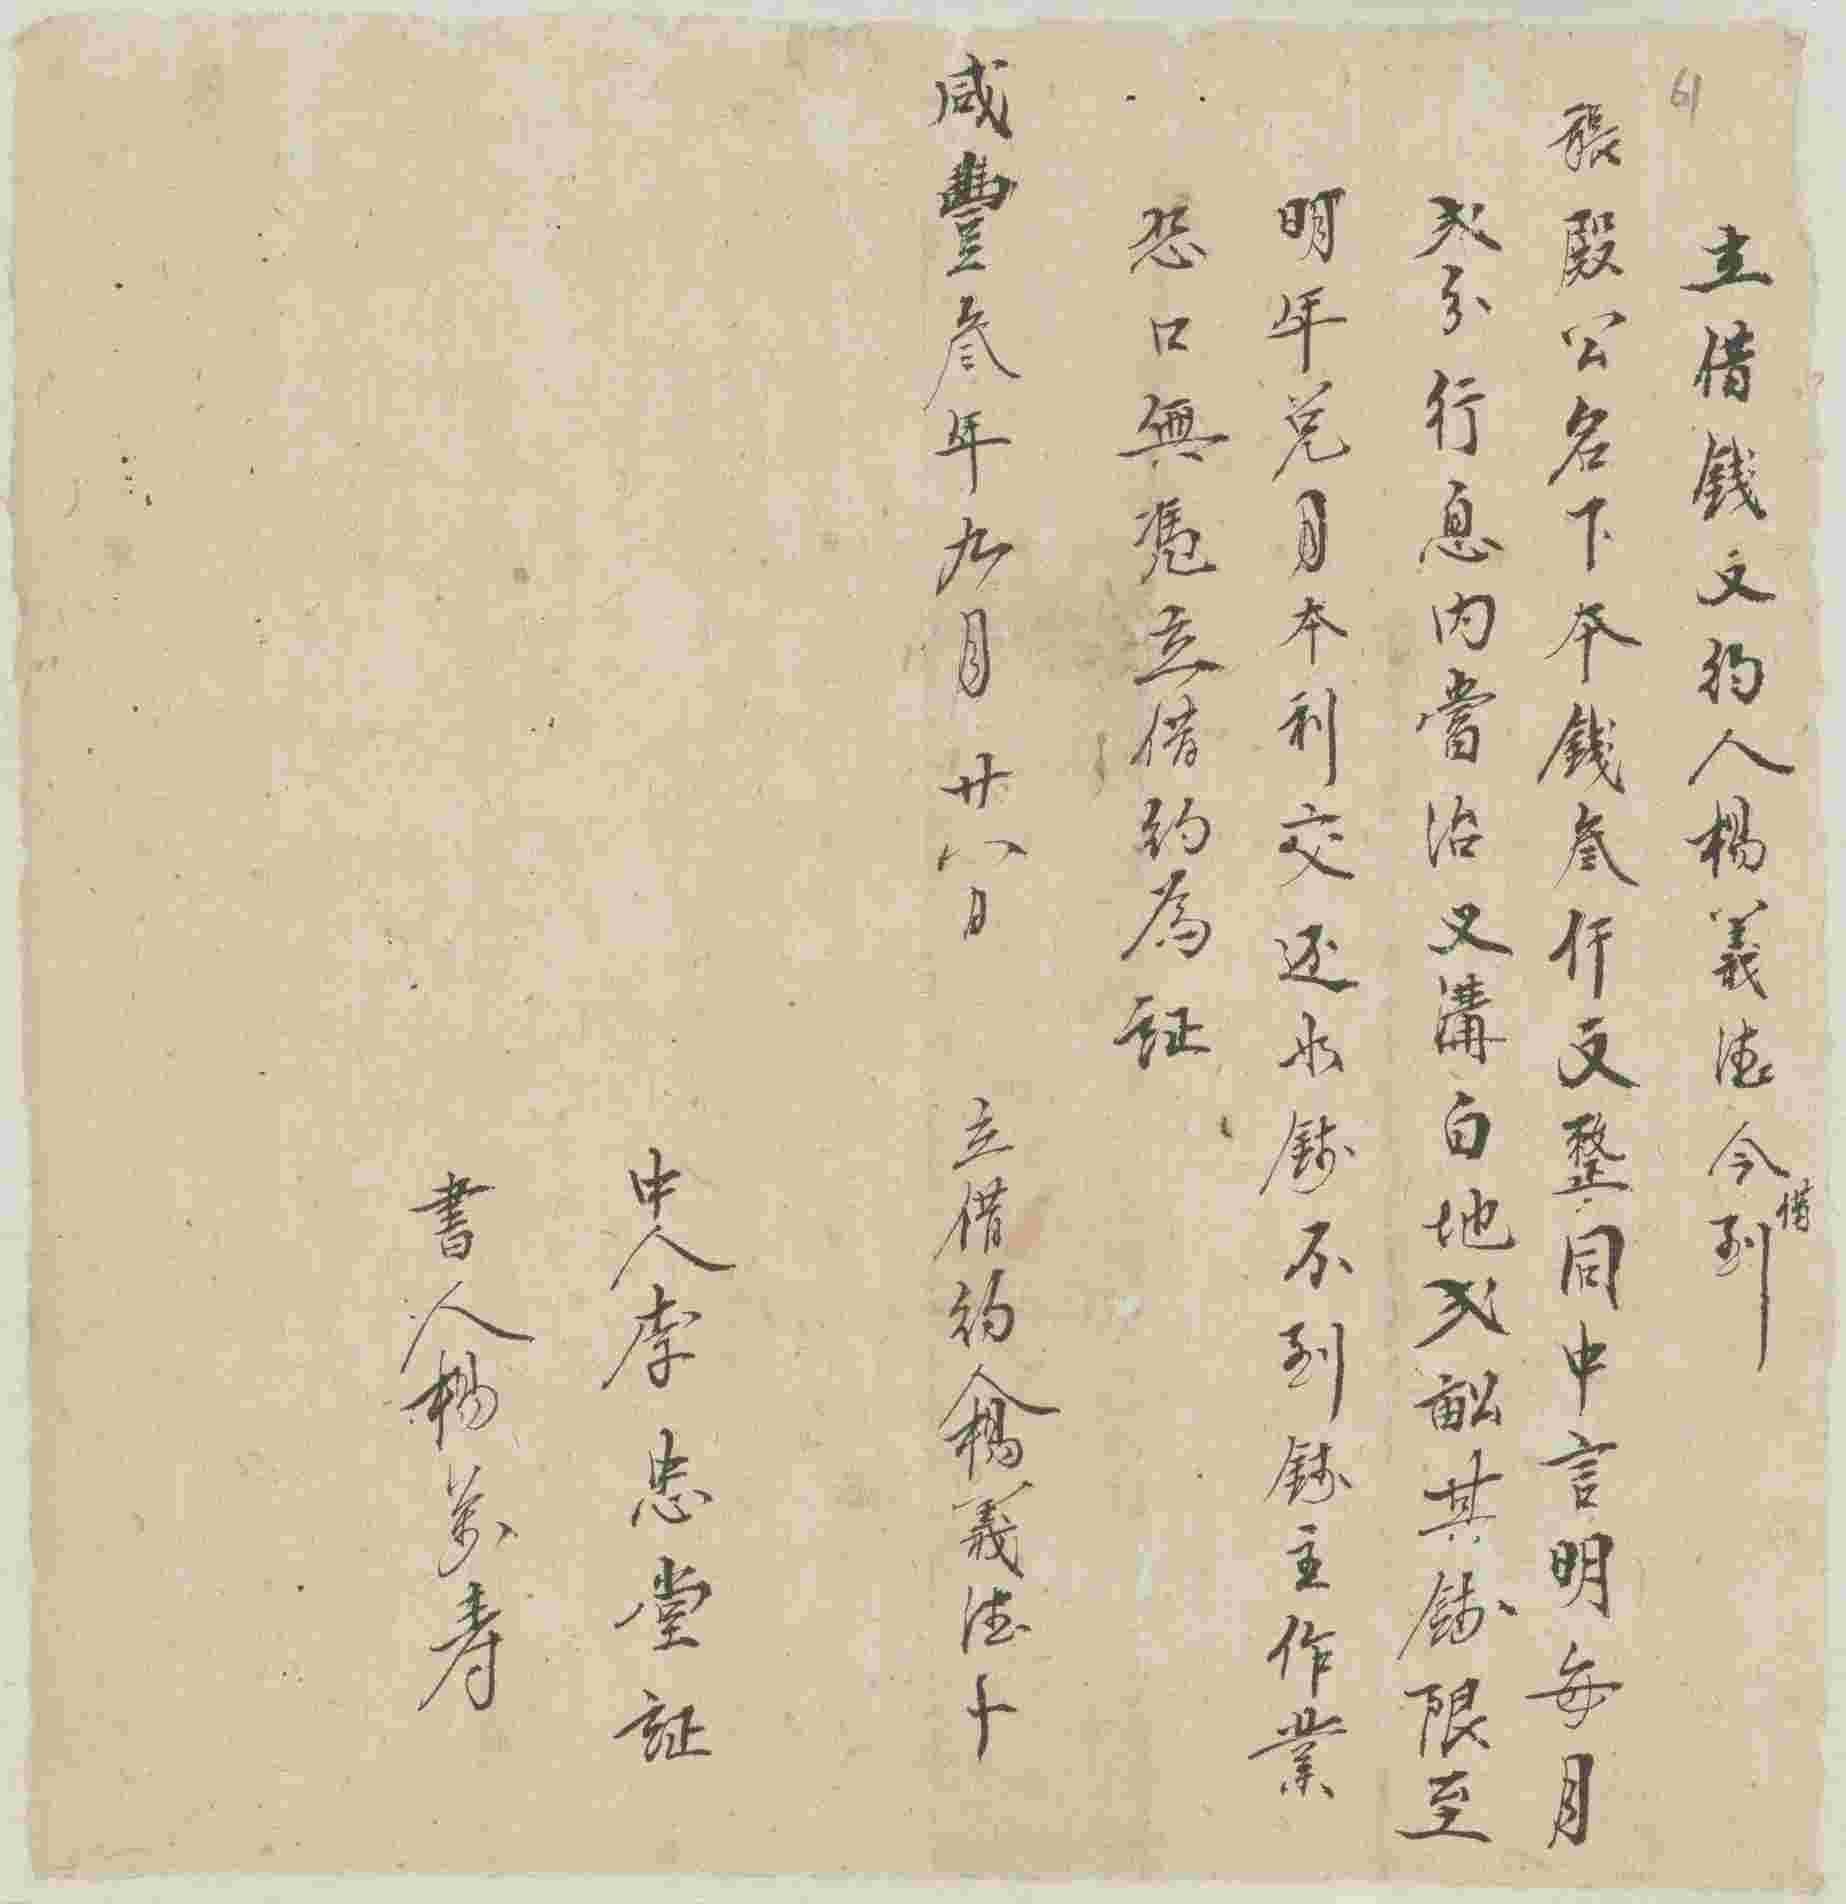 61
立借錢文約人楊義德今借到
張殿公名下本錢叁仟文整同中言明每月
弍分行息内當治又溝白地弍畝其錢限至
明年兌月本利交还如錢不到錢主作業
恐口無憑立借約為証
咸豐叁年九月廿八日 立借約人楊義德十
中人李忠堂証
書人楊萬寿